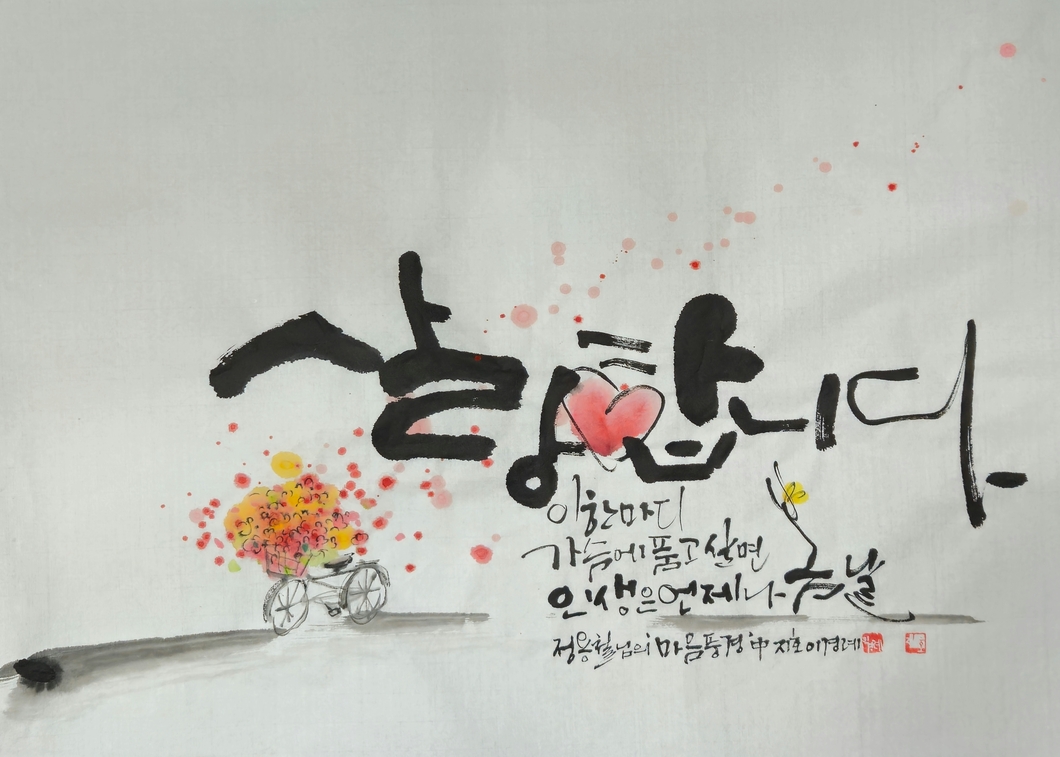 사랑합니다.
이 한마디
가슴에 품고 살면
인생은 언제나 봄날
정용철님의 마음풍경 中 지호 이경례